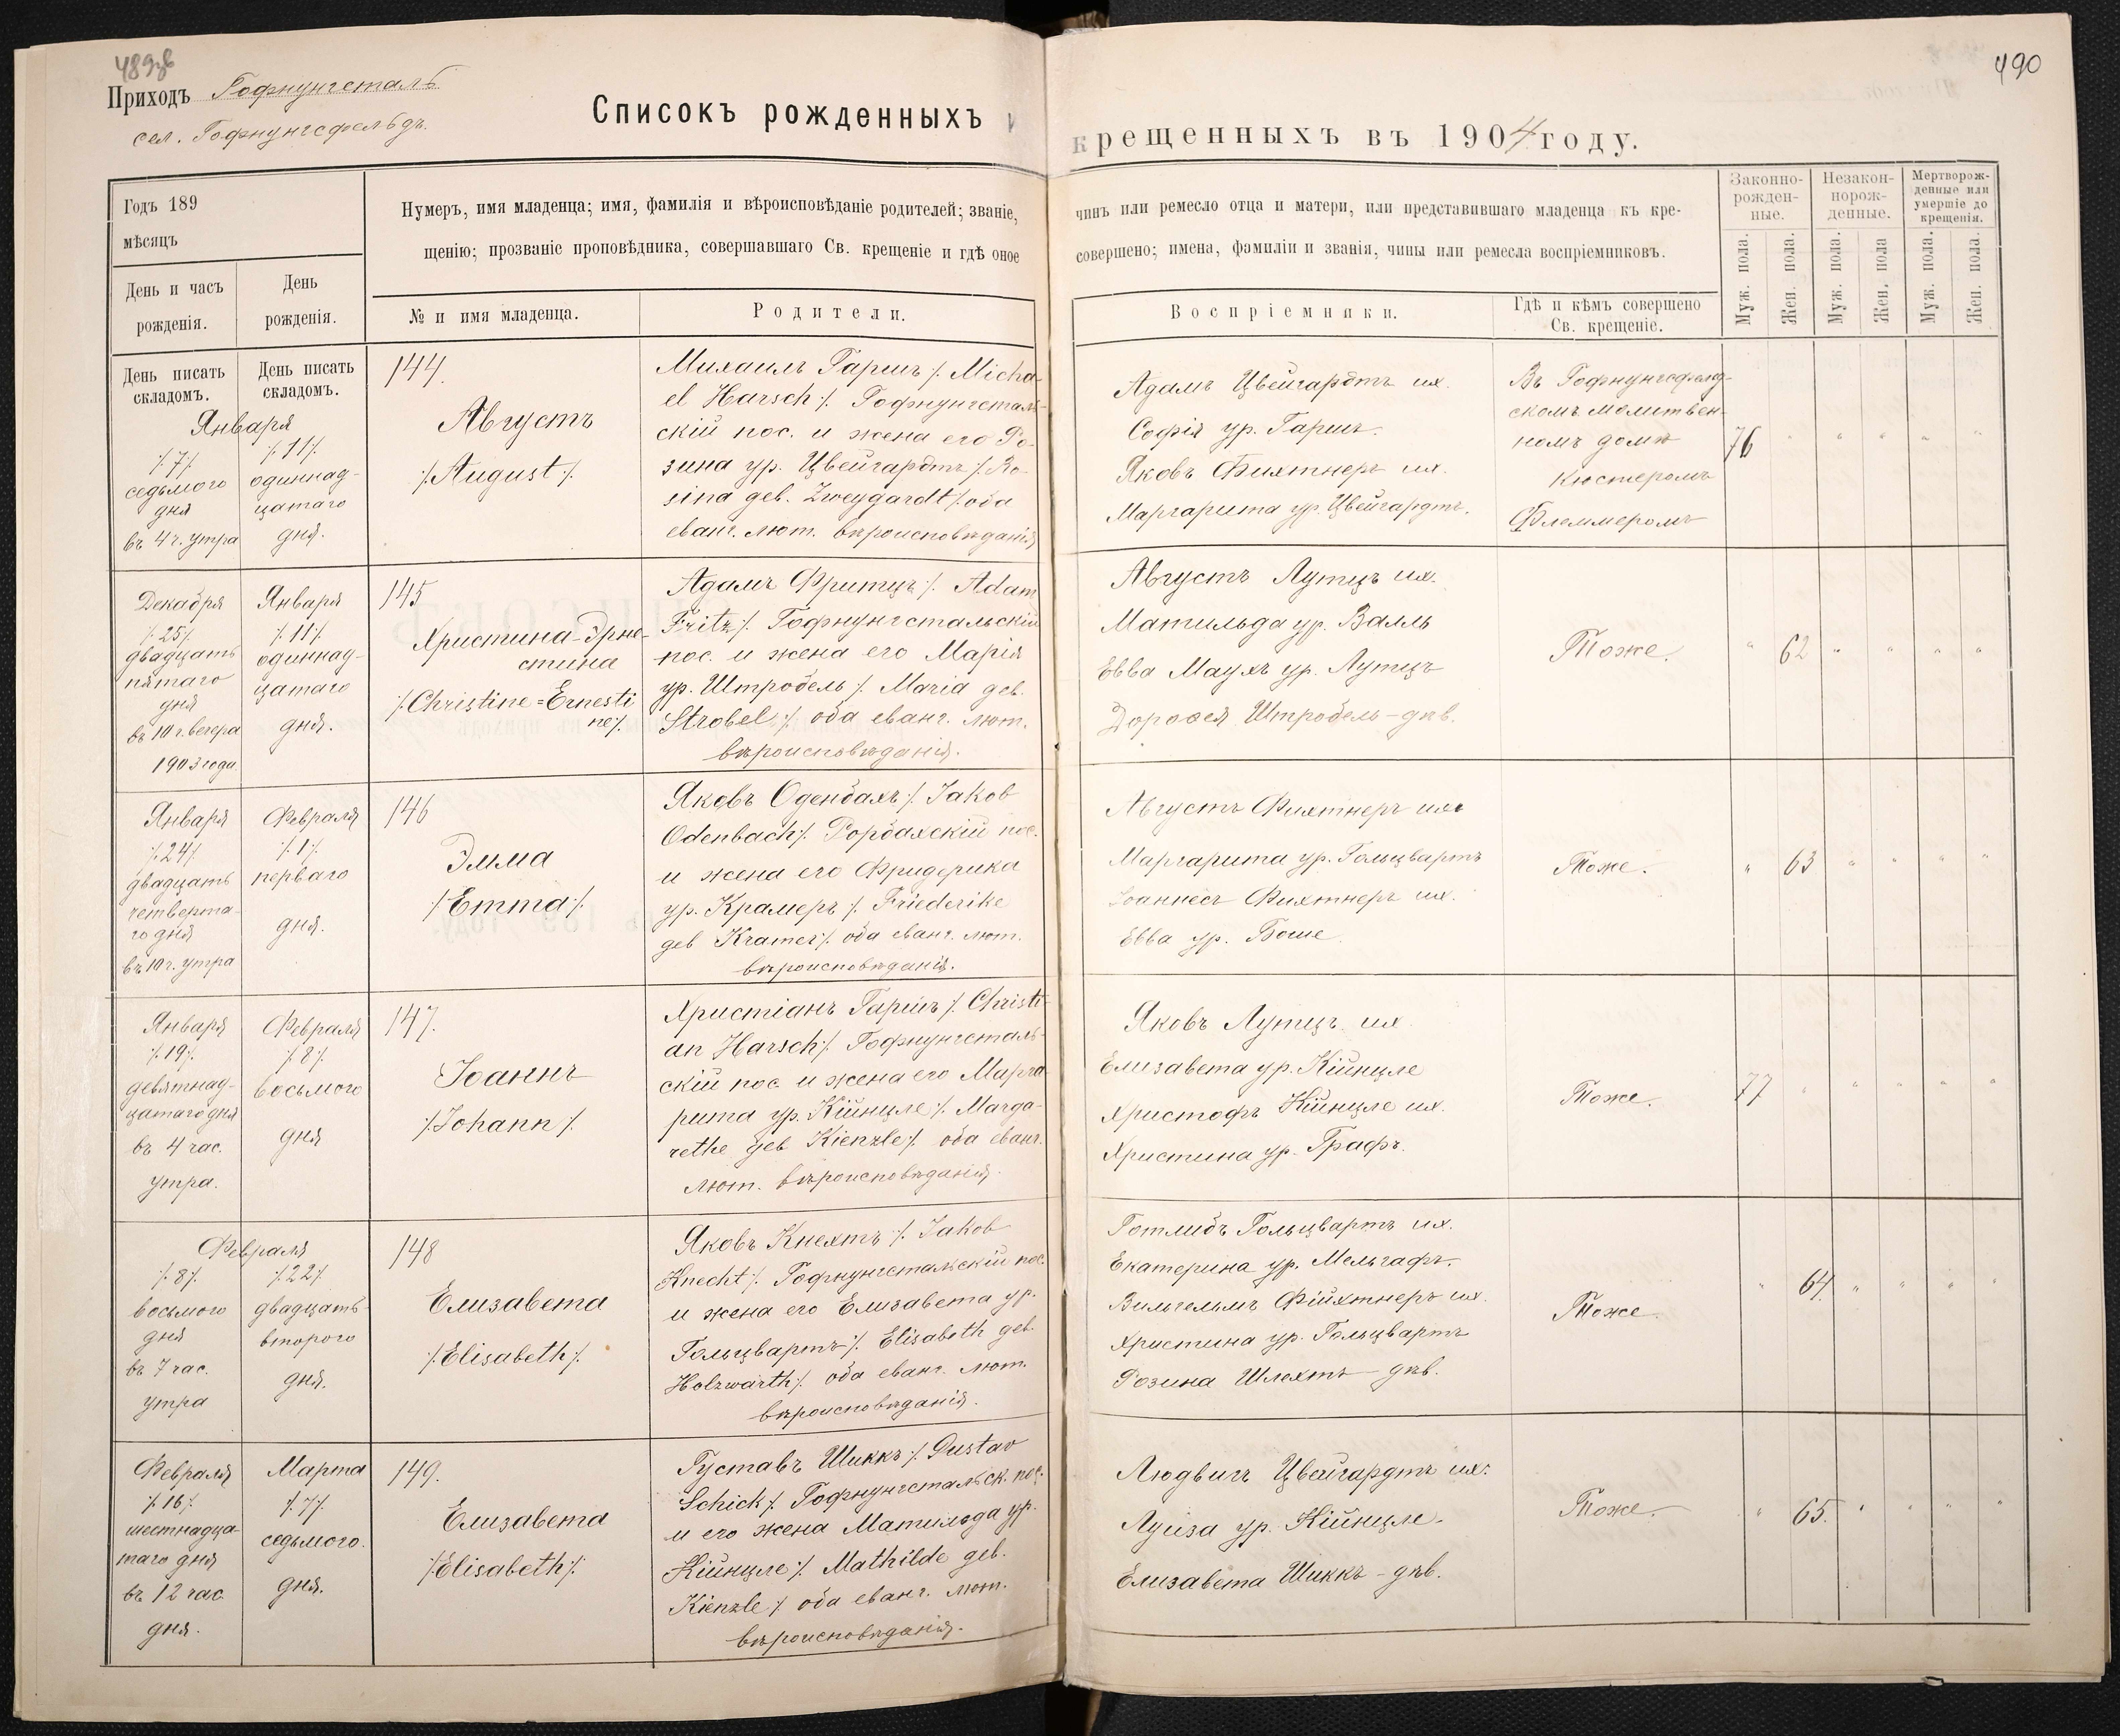 489об
490
Приходъ Гофнунгсталь
сел. Гофнунгсфельдъ.
Списокъ рожденныхъ и крещенныхъ въ 1904 году.
Годъ 189
мѣсяцъ
Нумеръ, имя младенца; имя, фамилія и вѣроисповѣданіе родителей; званіе,
щенію; прозваніе проповѣдника, совершавшаго Св. крещеніе и гдѣ оное
чинъ или ремесло отца и матери, или представившаго младенца къ кре-
совершено; имена, фамиліи и званія, чины или ремесла воспріемниковъ.
Законно-
рожден-
ные.
Незакон-
норож-
денные.
Мертворож-
денные или
умершіе до
крещенія.
День и часъ
рожденія.
День
рожденія.
№ и имя младенца.
Родители.
Воспріемники.
Гдѣ и кѣмъ совершено
Св. крещеніе.
Муж. пола.
Жен. пола.
Муж. пола.
Жен. пола
Муж. пола.
Жен. пола.
День писать
складомъ.
День писать
складомъ.
Января
/.7/.
седьмого
дня
въ 4 ч. утра
/.11/.
одиннад-
цатаго
дня.
144.
Августъ
/.August/.
Михаилъ Гаршъ /. Micha-
el Harsch/. Гофнунгсталь-
скій пос. и жена его Ро-
зина ур. Цвейгардтъ /.Ro-
sina geb. Zweygardt/. оба
еванг. лют. вѣроисповѣданія
Адамъ Цвейгардтъ их.
Софія ур. Гаршъ.
Яковъ Фихтнеръ их.
Маргарита ур. Цвейгардтъ.
Въ Гофнунгсфельд-
скомъ молитвен-
номъ домѣ
Кюстеромъ
Флеммеромъ
76 " " " " "
Декабря
/.25/.
двадцать
пятаго
дня
въ 10 ч. вечера
1903 года
Января
/.11/.
одиннад-
цатаго
дня.
145
Христина-Эрне-
стина
/.Christine=Ernesti
ne/.
Адамъ Фритцъ /. Adam
Fritz/. Гофнунгстальскій
пос. и жена его Марія
ур. Штробель /. Maria geb.
Strobel /. оба еванг. лют.
вѣроисповѣданія.
Августъ Лутцъ их.
Матильда ур. Валль
Евва Маухъ ур. Лутцъ
Дорофея Штробель - дѣв.
Тоже.
" 62 " " " "
Января
/.24/.
двадцать
четверта-
го дня
въ 10 ч. утра
Февраля
/.1/.
перваго
дня.
146
Эмма
/.Emma/.
Яковъ Оденбахъ /. Jakob
Odenbach/. Рорбахскій пос.
и жена его Фридерика
ур. Крамеръ /. Friedrike
geb Kramer/. оба еванг. лют.
вѣроисповѣданія.
Августъ Фихтнеръ их.
Маргарита ур. Гольцвартъ
Іоаннесъ Фихтнеръ их.
Евва ур. Боше.
Тоже.
" 63 " " " "
Января
/.19/.
девятнад-
цатаго дня
въ 4 час.
утра.
Февраля
/.8/.
восьмого
дня
147.
Іоаннъ
/.Johann/.
Христіанъ Гаршъ /. Christi-
an Harsch/. Гофнунгсталь-
скій пос. и жена его Марга-
рита ур. Кійнцле /. Marga-
rethe geb Kienzle/. оба еванг.
лют. вѣроисповѣданія.
Яковъ Лутцъ их
Елизавета ур. Кійнцле
Христофъ Кійнцле их.
Христина ур. Графъ.
Тоже.
77 " " " " "
Февраля
/.8/.
восьмого
дня
въ 7 час.
утра
/.22/.
двадцать
второго
дня.
148
Елизавета
/.Elisabeth/.
Яковъ Кнехтъ /. Jakob
Knecht/. Гофнунгстальскій пос.
и жена его Елизавета ур.
Гольцвартъ /. Elisabeth geb.
Holzwarth/. оба еванг. лют.
вѣроисповѣданія.
Готлибъ Гольцвартъ их.
Екатерина ур. Мельгафъ.
Вильгельмъ Фійхтнеръ их.
Христина ур. Гольцвартъ
Розина Шлехтъ - дѣв.
Тоже.
" 64. " " " "
Февраля
/.16/.
шестнадца-
таго дня
въ 12 час
дня.
Марта
/.7/.
седьмого.
дня.
149.
Елизавета
/.Elisabeth/.
Густавъ Шиккъ /. Gustav
Schick/. Гофнунгстальск. пос.
и его жена Матильда ур.
Кійнцле /. Mathilde geb.
Kienzle /. оба еванг. лют.
вѣроисповѣданія.
Людвигъ Цвейгардтъ их.
Луиза ур. Кійнцле.
Елизавета Шиккъ - дѣв.
Тоже.
" 65. " " " "